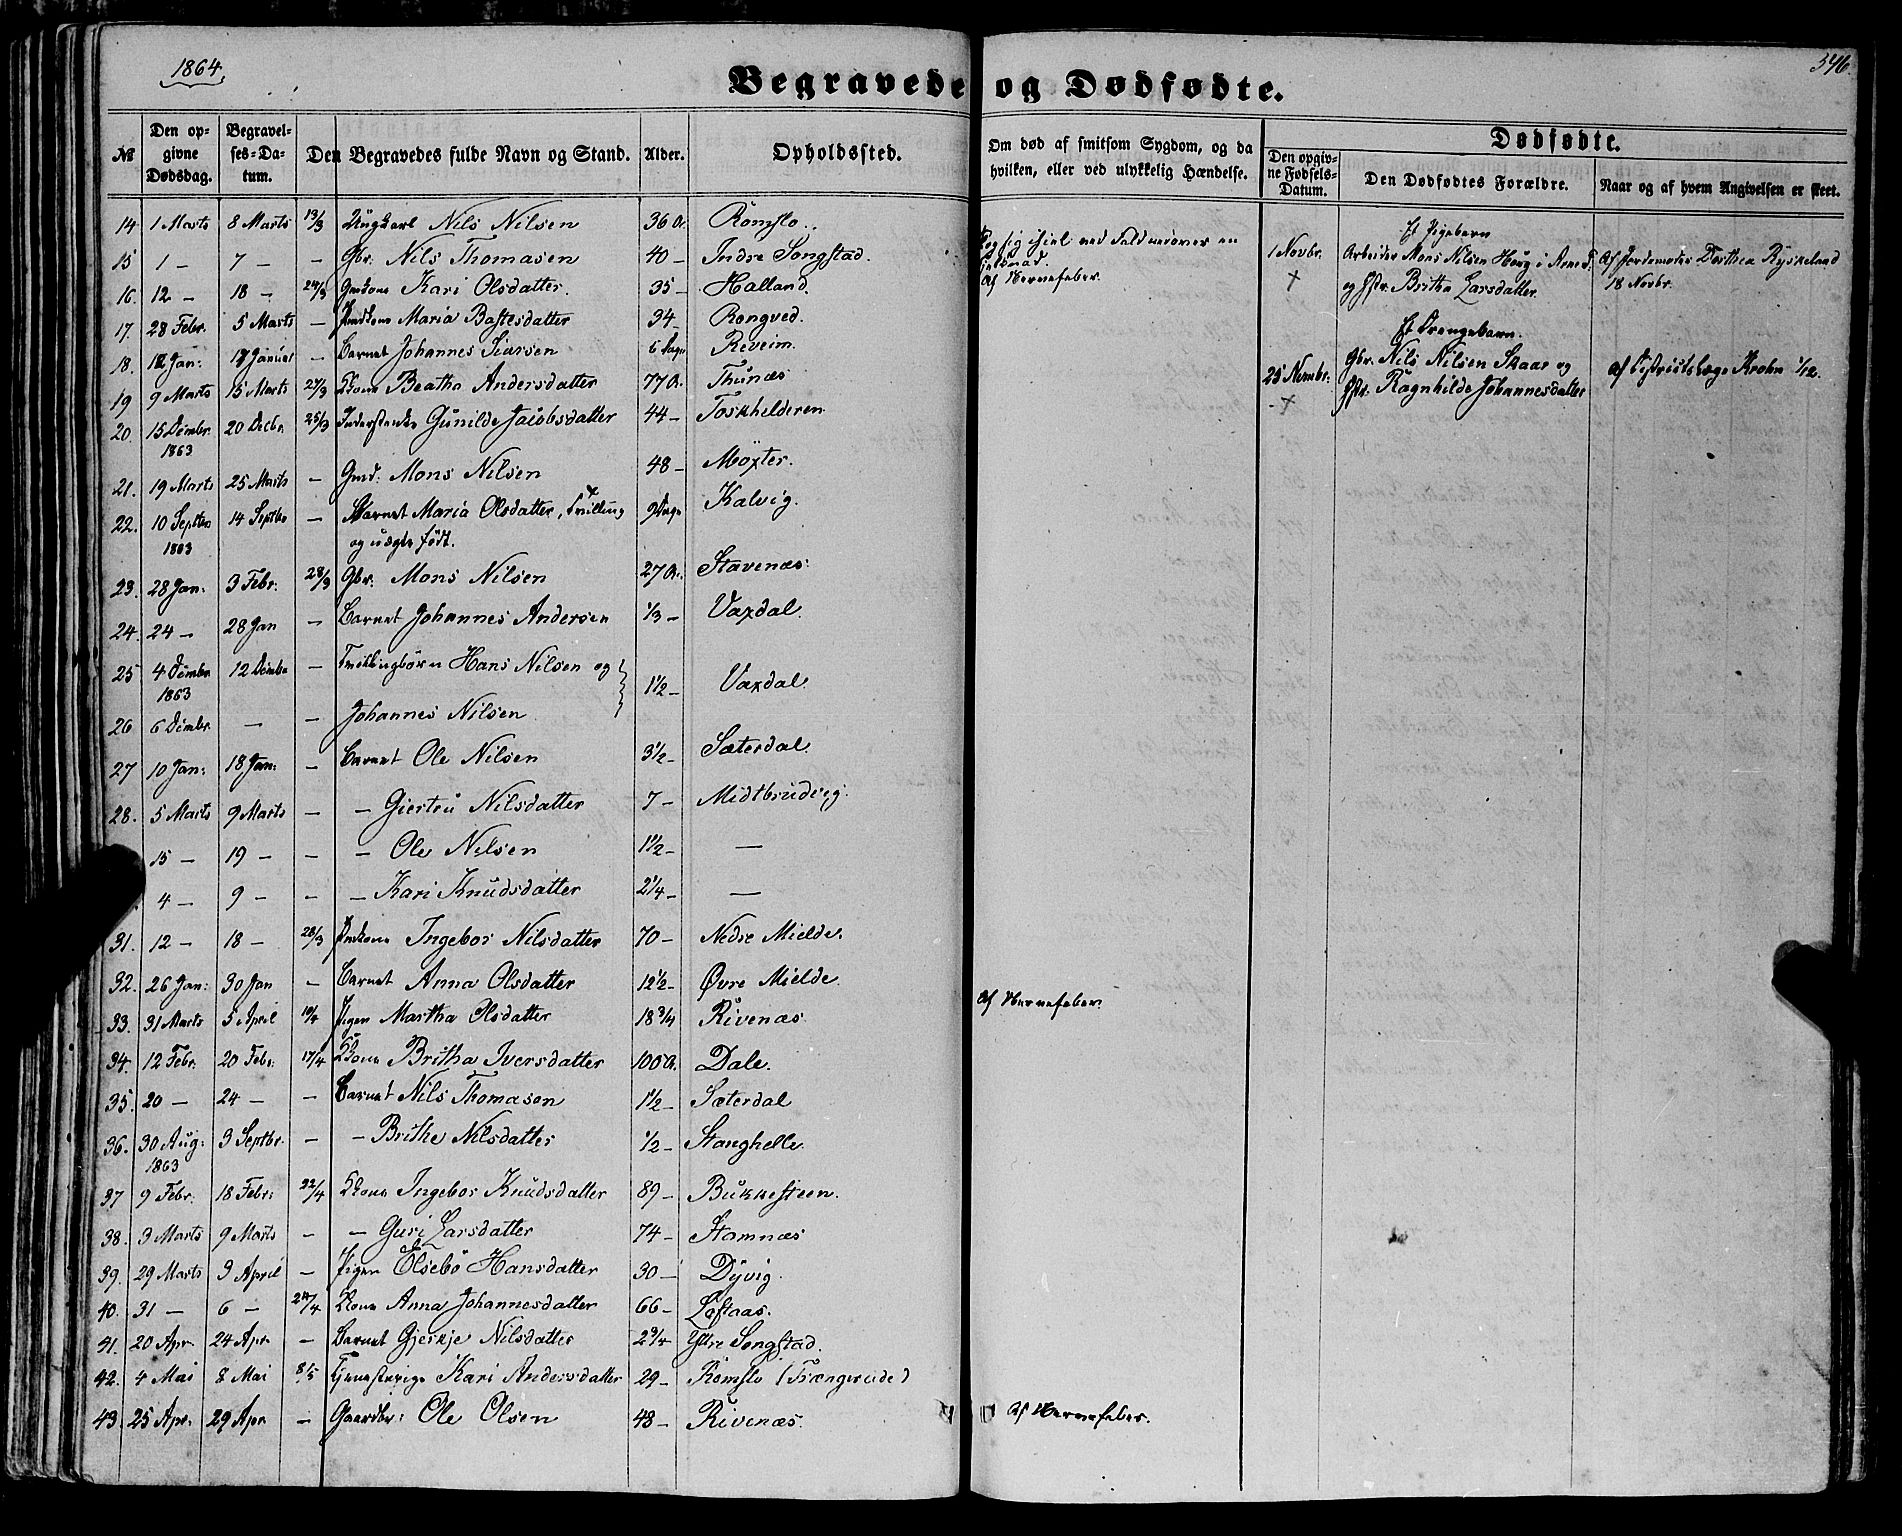 1864.
546.
Begravede og Dødfødte.
№
Den opgivne Dødsdag.
Begravelses-Datum.
Den Begravedes fulde Navn og Stand.
Alder.
Opholdssted.
Om død af smitsom Sygdom, og da hvilken, eller ved ulykkelig Hændelse.
Dødfødte.
Den opgivne Fødsels-Datum.
Den Dødfødtes Forældre.
Naar og af hvem Angivelsen er skeet.
14 1 Marts 8 Marts 13/3 Ungkarl Nils Nilsen 36 Romslo
15 1 — 7 — — Gbr. Nils Thomasen 40 — Indre Songstad.
16. 12 — 18 — Kari Olsdatter. 35 — Halland. Af Nervefeber.
17. 28 Febr. 5 Marts — Maria Bastesdatter 34 — Rongved.
18. Jan: 17 Januar — Barnet Johannes 6 Dage Reveim.
19 9 Marts 15 Marts 27/3 Kone Beatha Andersdatter 77 Thunæs
20. 15 Dcmbr. 1863 20 Decbr. 25/3 Gunilde Jacobsdatter 44 — Toskhelderen
21. 19 Marts 25 Marts — Gmd: Mons Nilsen 48 — Moxter.
22. 10 Septbr 1863 14 Septbr — Barnet Maria Olsdatter, Tvilling 9 Dage Kalvig.
og uægte født.
23. 28 Jan: 3 Febr: 28/3 Gbr. Mons Nilsen 27 Stavenæs.
24. 24 — 28 Jan — Barnet Johannes Andersen 1/3 — Vaxdal.
25 4 Dcmbr 1863 12 Dcmbr — Tvillingbørn Hans Nilsen og 1 1/2 — Vaxdal.
26 6 Dcmbr. — — Johannes Nilsen
27 10 Jan: 18 Jan: — Barnet Ole Nilsen 3 1/2 — Sæterdal
28. 5 Marts 9 Marts — — Giertru Nilsdatter 7 — Midtbrudvig.
15 — 19 — — — Ole Nilsen 1 1/2 — —
4 — 9 — — — Kari Knudsdatter 2 1/4 — —
31. 12 — 18 — 28/3 Ingebor Nilsdatter 70 — Nedre Mielde.
32. 26 Jan: 30 Jan — Barnet Anna Olsdatter 12 1/2 — Øvre Mielde
33. 31 Marts 5 April 10/4 Pigen Martha Olsdatter 18 3/4 Rivenæs Af Nervefeber.
34. 12 Febr. 20 Febr: 17/4 Kone Britha Iversdatter 100 Dale.
35. 20 — 24 — — Barnet Nils Thomasen 1 1/2 — Sæterdal
36. 30 Aug: 1863 3 Septbr. — — Brithe Nilsdatter 1/2 — Stanghelle
37 9 Febr. 18 Febr: 22/4 Kone Ingebor Knudsdatter 89 — Bukkesteen.
38. 3 Marts 9 Marts — — Guri Larsdatter 74 — Stamnæs
39. 29 Marts 3 April — Pigen Elsebo Hansdatter 30 — Dyvig
40. 31 — 6 — 24/4 Kone Anna Johannesdatter 66 — Loftaas.
41. 20 Apr 24 Apr — Barnet Gjerkje Nilsdatter 2 3/4 — Ytre Songstad.
42. 4 Mai 8 Mai 8/5 Tjenestepige Kari Andersdatter 29 — Romslo (Trængereide)
43. 25 Apr. 29 Apr — Gaardbr: Ole Olsen 48 — Rivenæs. Af Nervefeber.
Et Pigebarn
1 Novbr. Arbeider Mons Nilsen Haug i Arne Af Jordemoder Dorthea Ryskeland
og Hstr. Britha Larsdatter. 18 Novbr.
Et Drengebarn.
Gbr. Nils Nilsen Skaar og
Hstr. Ragnhilde Johannesdatter
Af Districtslæge Krohn 1/12.